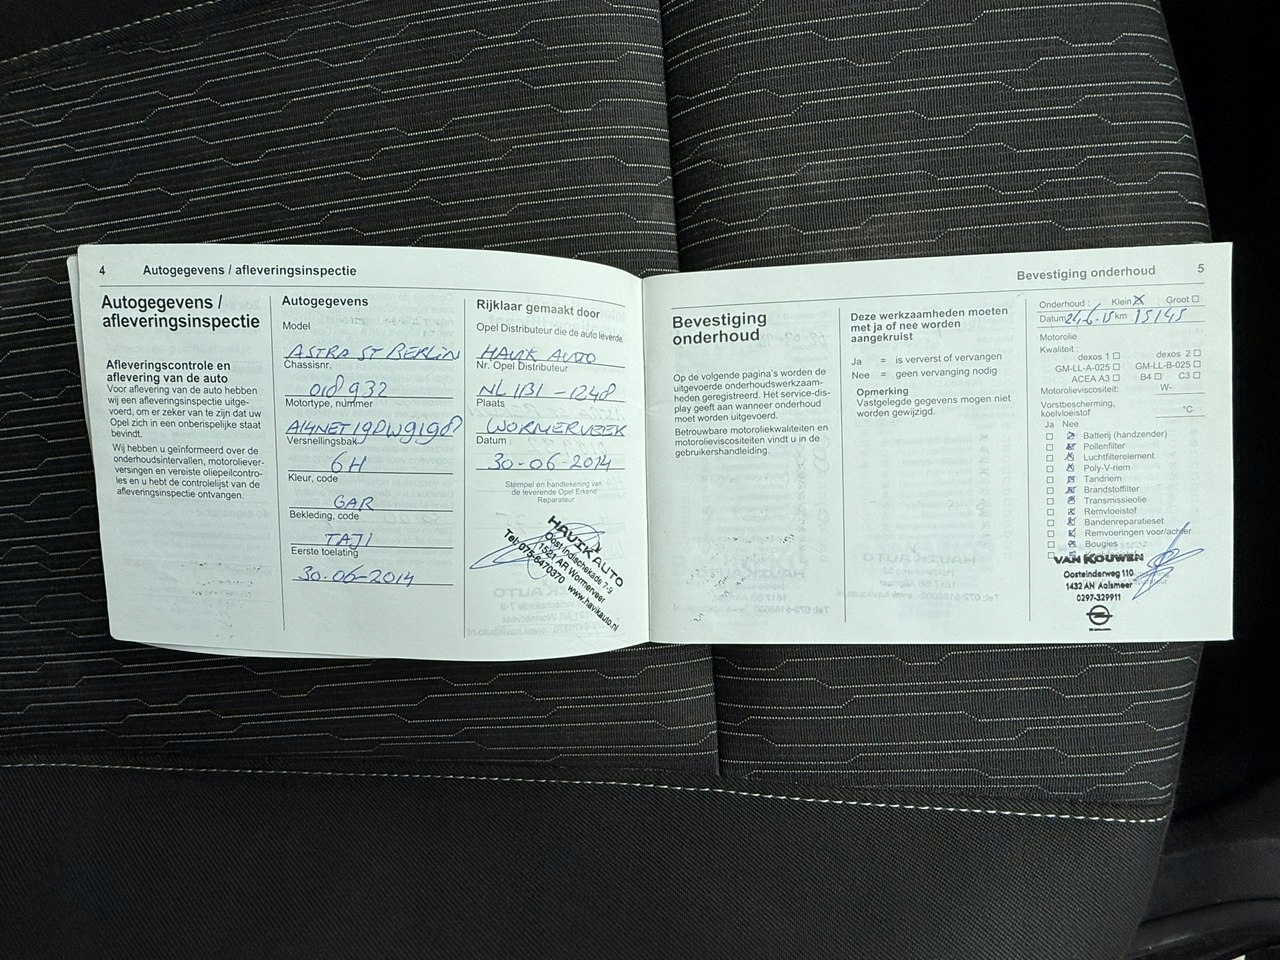 4 Autogegevens / afleveringsinspectie
Autogegevens /
afleveringsinspectie
Afleveringscontrole en
aflevering van de auto
Voor aflevering van de auto hebben
wij een afleveringsinspectie uitge-
voerd, om er zeker van te zijn dat uw
Opel zich in een onberispelijke staat
bevindt.
Wij hebben u geïnformeerd over de
onderhoudsintervallen, motoroliever-
versingen en vereiste oliepeilcontro-
les en u hebt de controlelijst van de
afleveringsinspectie ontvangen.
Autogegevens
Model
ASTRA ST BERLIN
Chassisnr.
018932
Motortype, nummer
A14NET19DW9198
Versnellingsbak
6H
Kleur, code
GAR
Bekleding, code
TAJI
Eerste toelating
30-06-2014
Rijklaar gemaakt door
Opel Distributeur die de auto leverde
HAVIK AUTO
Nr. Opel Distributeur
NL 1131 - 1248
Plaats
WORMERVEER
Datum
30-06-2014
Stempel en handtekening van
de leverende Opel Erkend
Reparateur
HAVIK AUTO
Oost Indischekade 7-9
1521 AR Wormerveer
Tel: 075-6470370 www.havikauto.nl
Bevestiging onderhoud 5
Bevestiging
onderhoud
Op de volgende pagina's worden de
uitgevoerde onderhoudswerkzaam-
heden geregistreerd. Het service-dis-
play geeft aan wanneer onderhoud
moet worden uitgevoerd.
Betrouwbare motoroliekwaliteiten en
motorolieviscositeiten vindt u in de
gebruikershandleiding.
Deze werkzaamheden moeten
met ja of nee worden
aangekruist
Ja = is ververst of vervangen
Nee = geen vervanging nodig
Opmerking
Vastgelegde gegevens mogen niet
worden gewijzigd.
Onderhoud : Klein X Groot
Datum 24-6-15 km 15145
Motorolie
Kwaliteit :
dexos 1 dexos 2
GM-LL-A-025 GM-LL-B-025
ACEA A3 B4 C3
Motorolieviscositeit: W-
Vorstbescherming,
koelvloeistof °C
Ja Nee
Batterij (handzender)
Pollenfilter
Luchtfilterelement
Poly-V-riem
Tandriem
Brandstoffilter
Transmissieolie
Remvloeistof
Bandenreparatieset
Remvoeringen voor/achter
Bougies
VAN KOUWEN
Oosteinderweg 110
1432 AN Aalsmeer
0297-329911